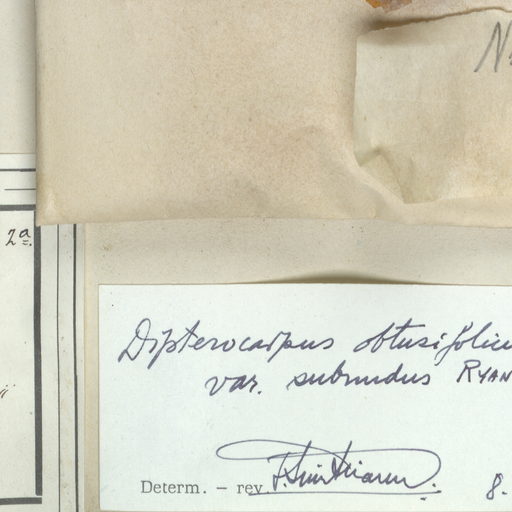 2a.
Dipterocarpus obtusifoliu
var. subnudus RYAN
Determ. – rev.
8.